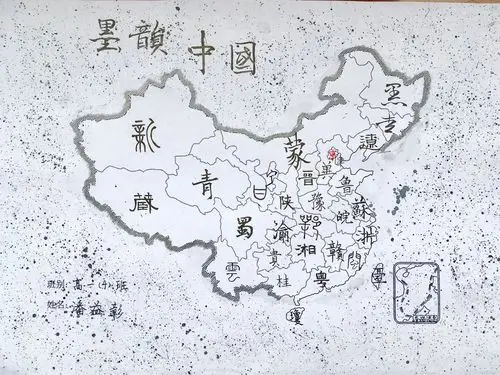 墨韻中國
黑
吉
遼
新
蒙
京
冀
晉
魯
青
甘
藏
陕
豫
蘇
皖
蜀
渝
鄂
浙
湘
贛
閩
雲
貴
桂
粤
臺
瓊
班别:高一(4)班
姓名:潘益彰